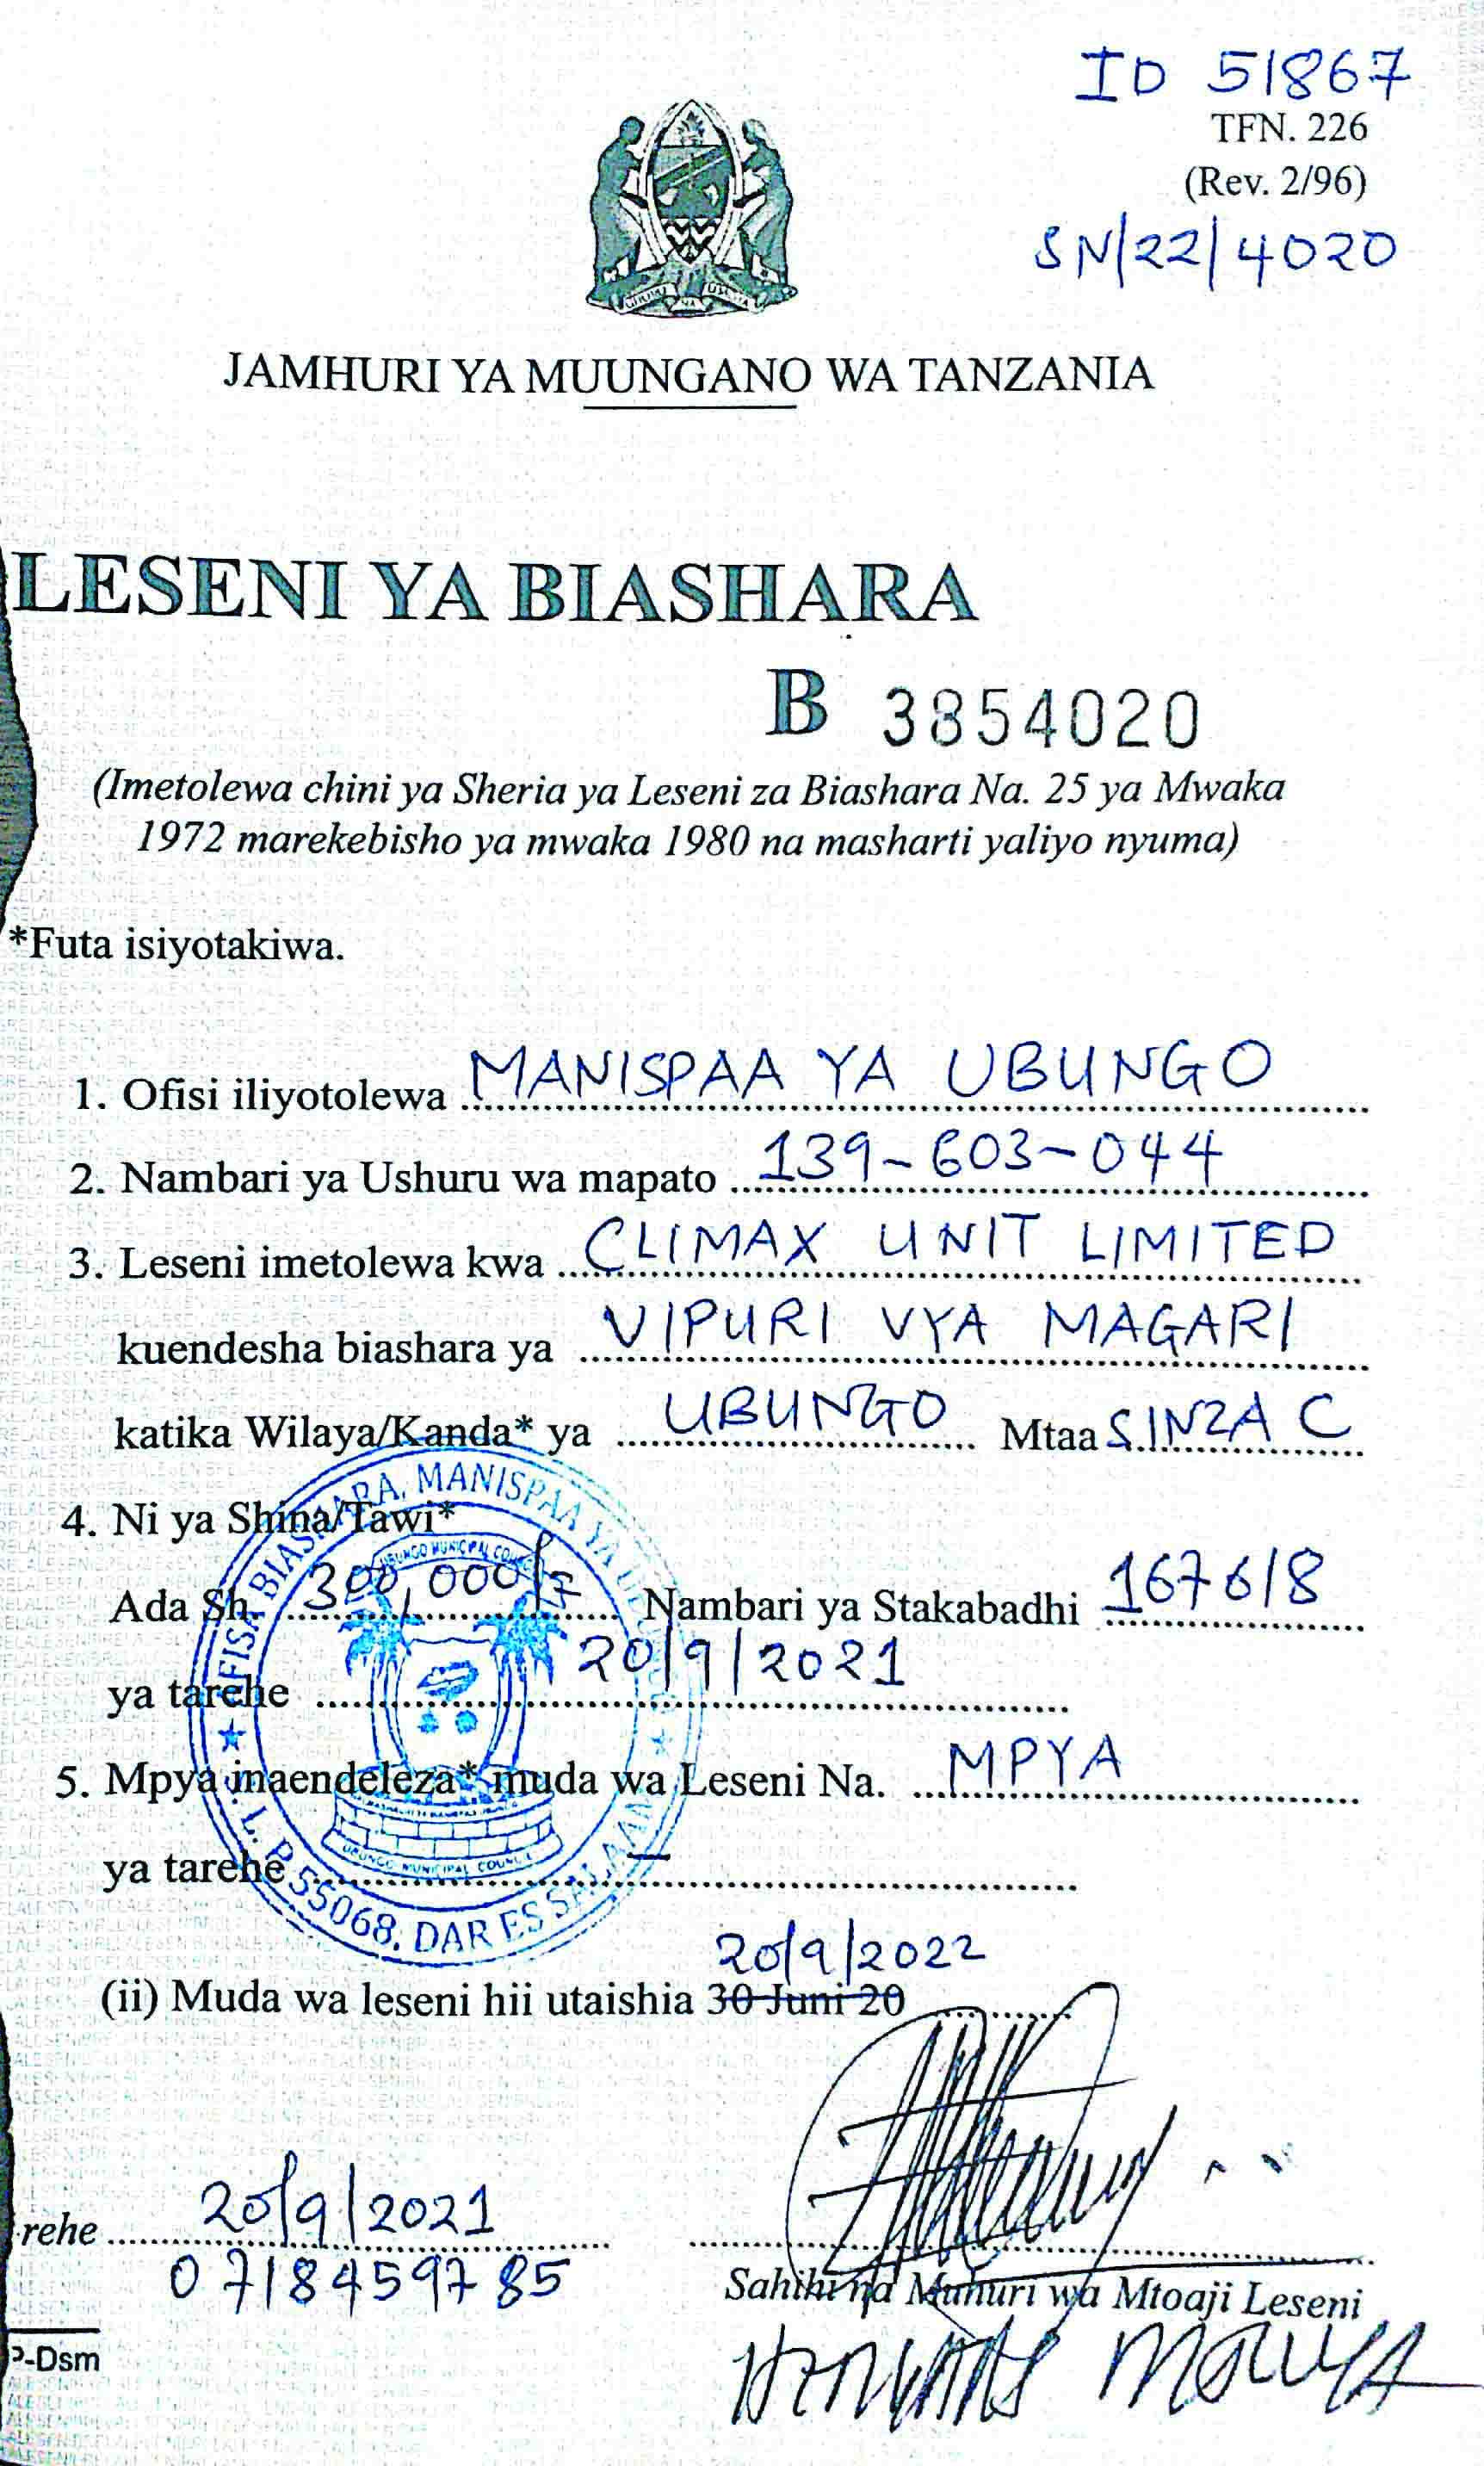 ID 51867
TFN. 226
(Rev. 2/96)
SN/22/4020
JAMHURI YA MUUNGANO WA TANZANIA
LESENI YA BIASHARA
B 3854020
(Imetolewa chini ya Sheria ya Leseni za Biashara Na. 25 ya Mwaka
1972 marekebisho ya mwaka 1980 na masharti yaliyo nyuma)
*Futa isiyotakiwa.
1. Ofisi iliyotolewa MANISPAA YA UBUNGO
2. Nambari ya Ushuru wa mapato 139-603-044
3. Leseni imetolewa kwa CLIMAX UNIT LIMITED
kuendesha biashara ya VIPURI VYA MAGARI
katika Wilaya/Kanda* ya UBUNGO Mtaa SINZA C
4. Ni ya Shina/Tawi*
Ada Sh. 300,000/= Nambari ya Stakabadhi 167618
ya tarehe 20/9/2021
5. Mpya inaendeleza* muda wa Leseni Na. MPYA
ya tarehe —
20/9/2022
(ii) Muda wa leseni hii utaishia 30 Juni 20
rehe 20/9/2021
0718459785
Sahihi na Muhuri wa Mtoaji Leseni
P-Dsm
AFISA BIASHARA, MANISPAA YA
UBUNGO MUNICIPAL COUNCIL
UBUNGO MUNICIPAL COUNCIL
S. L. P. 55068, DAR ES SALAAM